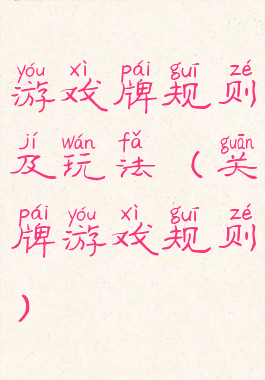 yóu xì pái guī zé
游戏牌规则
jí wán fǎ guān
及玩法（关
pái yóu xì guī zé
牌游戏规则
）